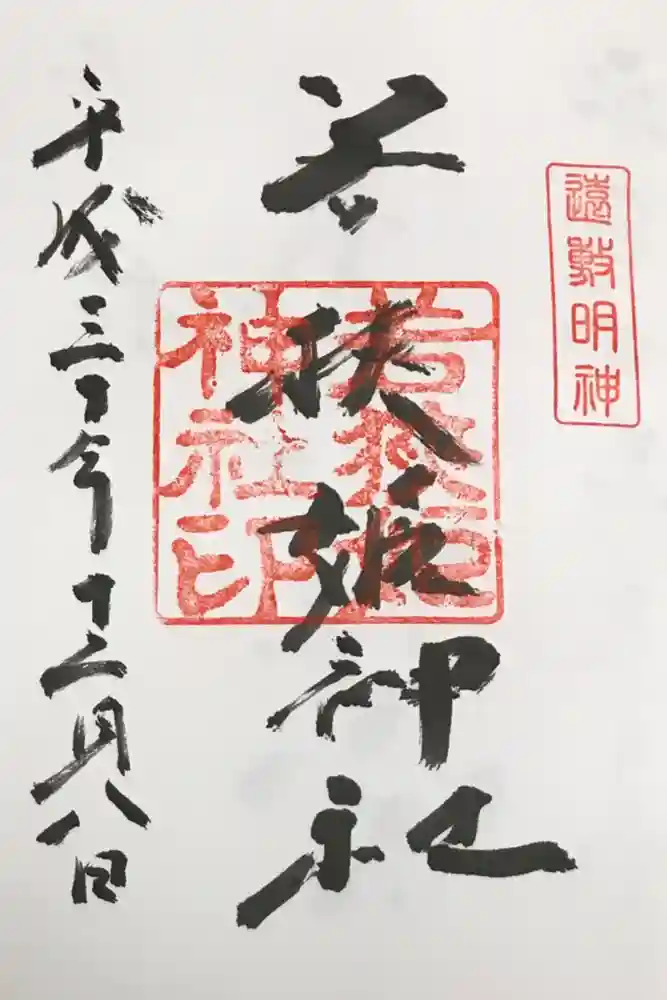 遠敷明神
若狭姫神社
若狭姫
神社印
平成三十年十二月八日